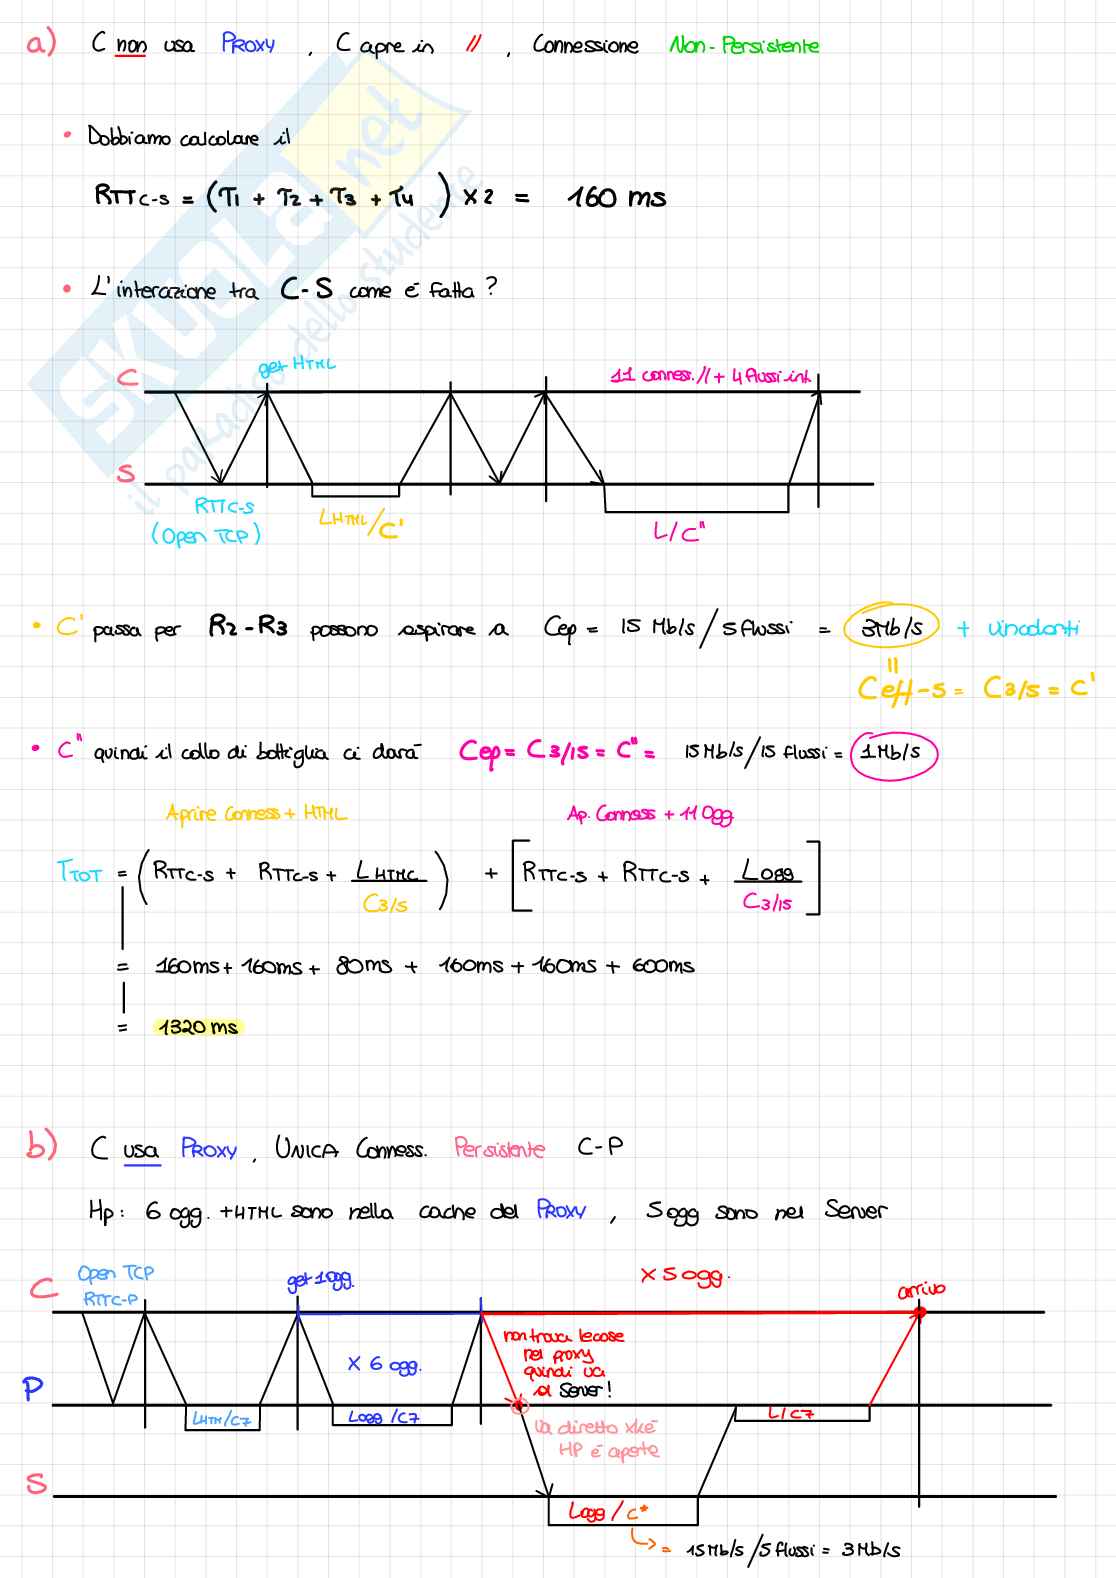 a) C non usa Proxy , C apre in // , Connessione Non-Persistente
• Dobbiamo calcolare il
RTTC-S = (τ1 + τ2 + τ3 + τ4) x 2 = 160 ms
• L'interazione tra C-S come è fatta?
get HTML
11 conness. // + 4 flussi int.
C
S
RTTC-S
(Open TCP)
LHTML/C'
L/C"
• C' passa per R2-R3 possono aspirare a Cep = 15 Mb/s / 5 flussi = 3Mb/s + vincolanti
=
Ceff-s = C3/5 = C'
• C" quindi il collo di bottiglia ci darà Cep = C3/15 = C" = 15 Mb/s / 15 flussi = 1Mb/s
Aprire Conness + HTML
Ap. Conness + 11 Ogg
TTOT = (RTTC-S + RTTC-S + LHTML/C3/5) + [RTTC-S + RTTC-S + LOgg/C3/15]
= 160ms + 160ms + 80ms + 160ms + 160ms + 600ms
= 1320 ms
b) C usa Proxy , Unica Conness. Persistente C-P
Hp: 6 ogg. + HTML sono nella cache del Proxy , 5 ogg sono nel Server
Open TCP
RTTC-P
get 1 ogg.
x 5 ogg.
arrivo
C
x 6 ogg.
non trova le cose
nel proxy
quindi va
al Server!
P
LHTM/C7
Logg/C7
L/C7
va diretto xkè
HP è aperte
S
Logg / C*
= 15Mb/s / 5 flussi = 3Mb/s
SKUOLA.net
il paradiso dello studente